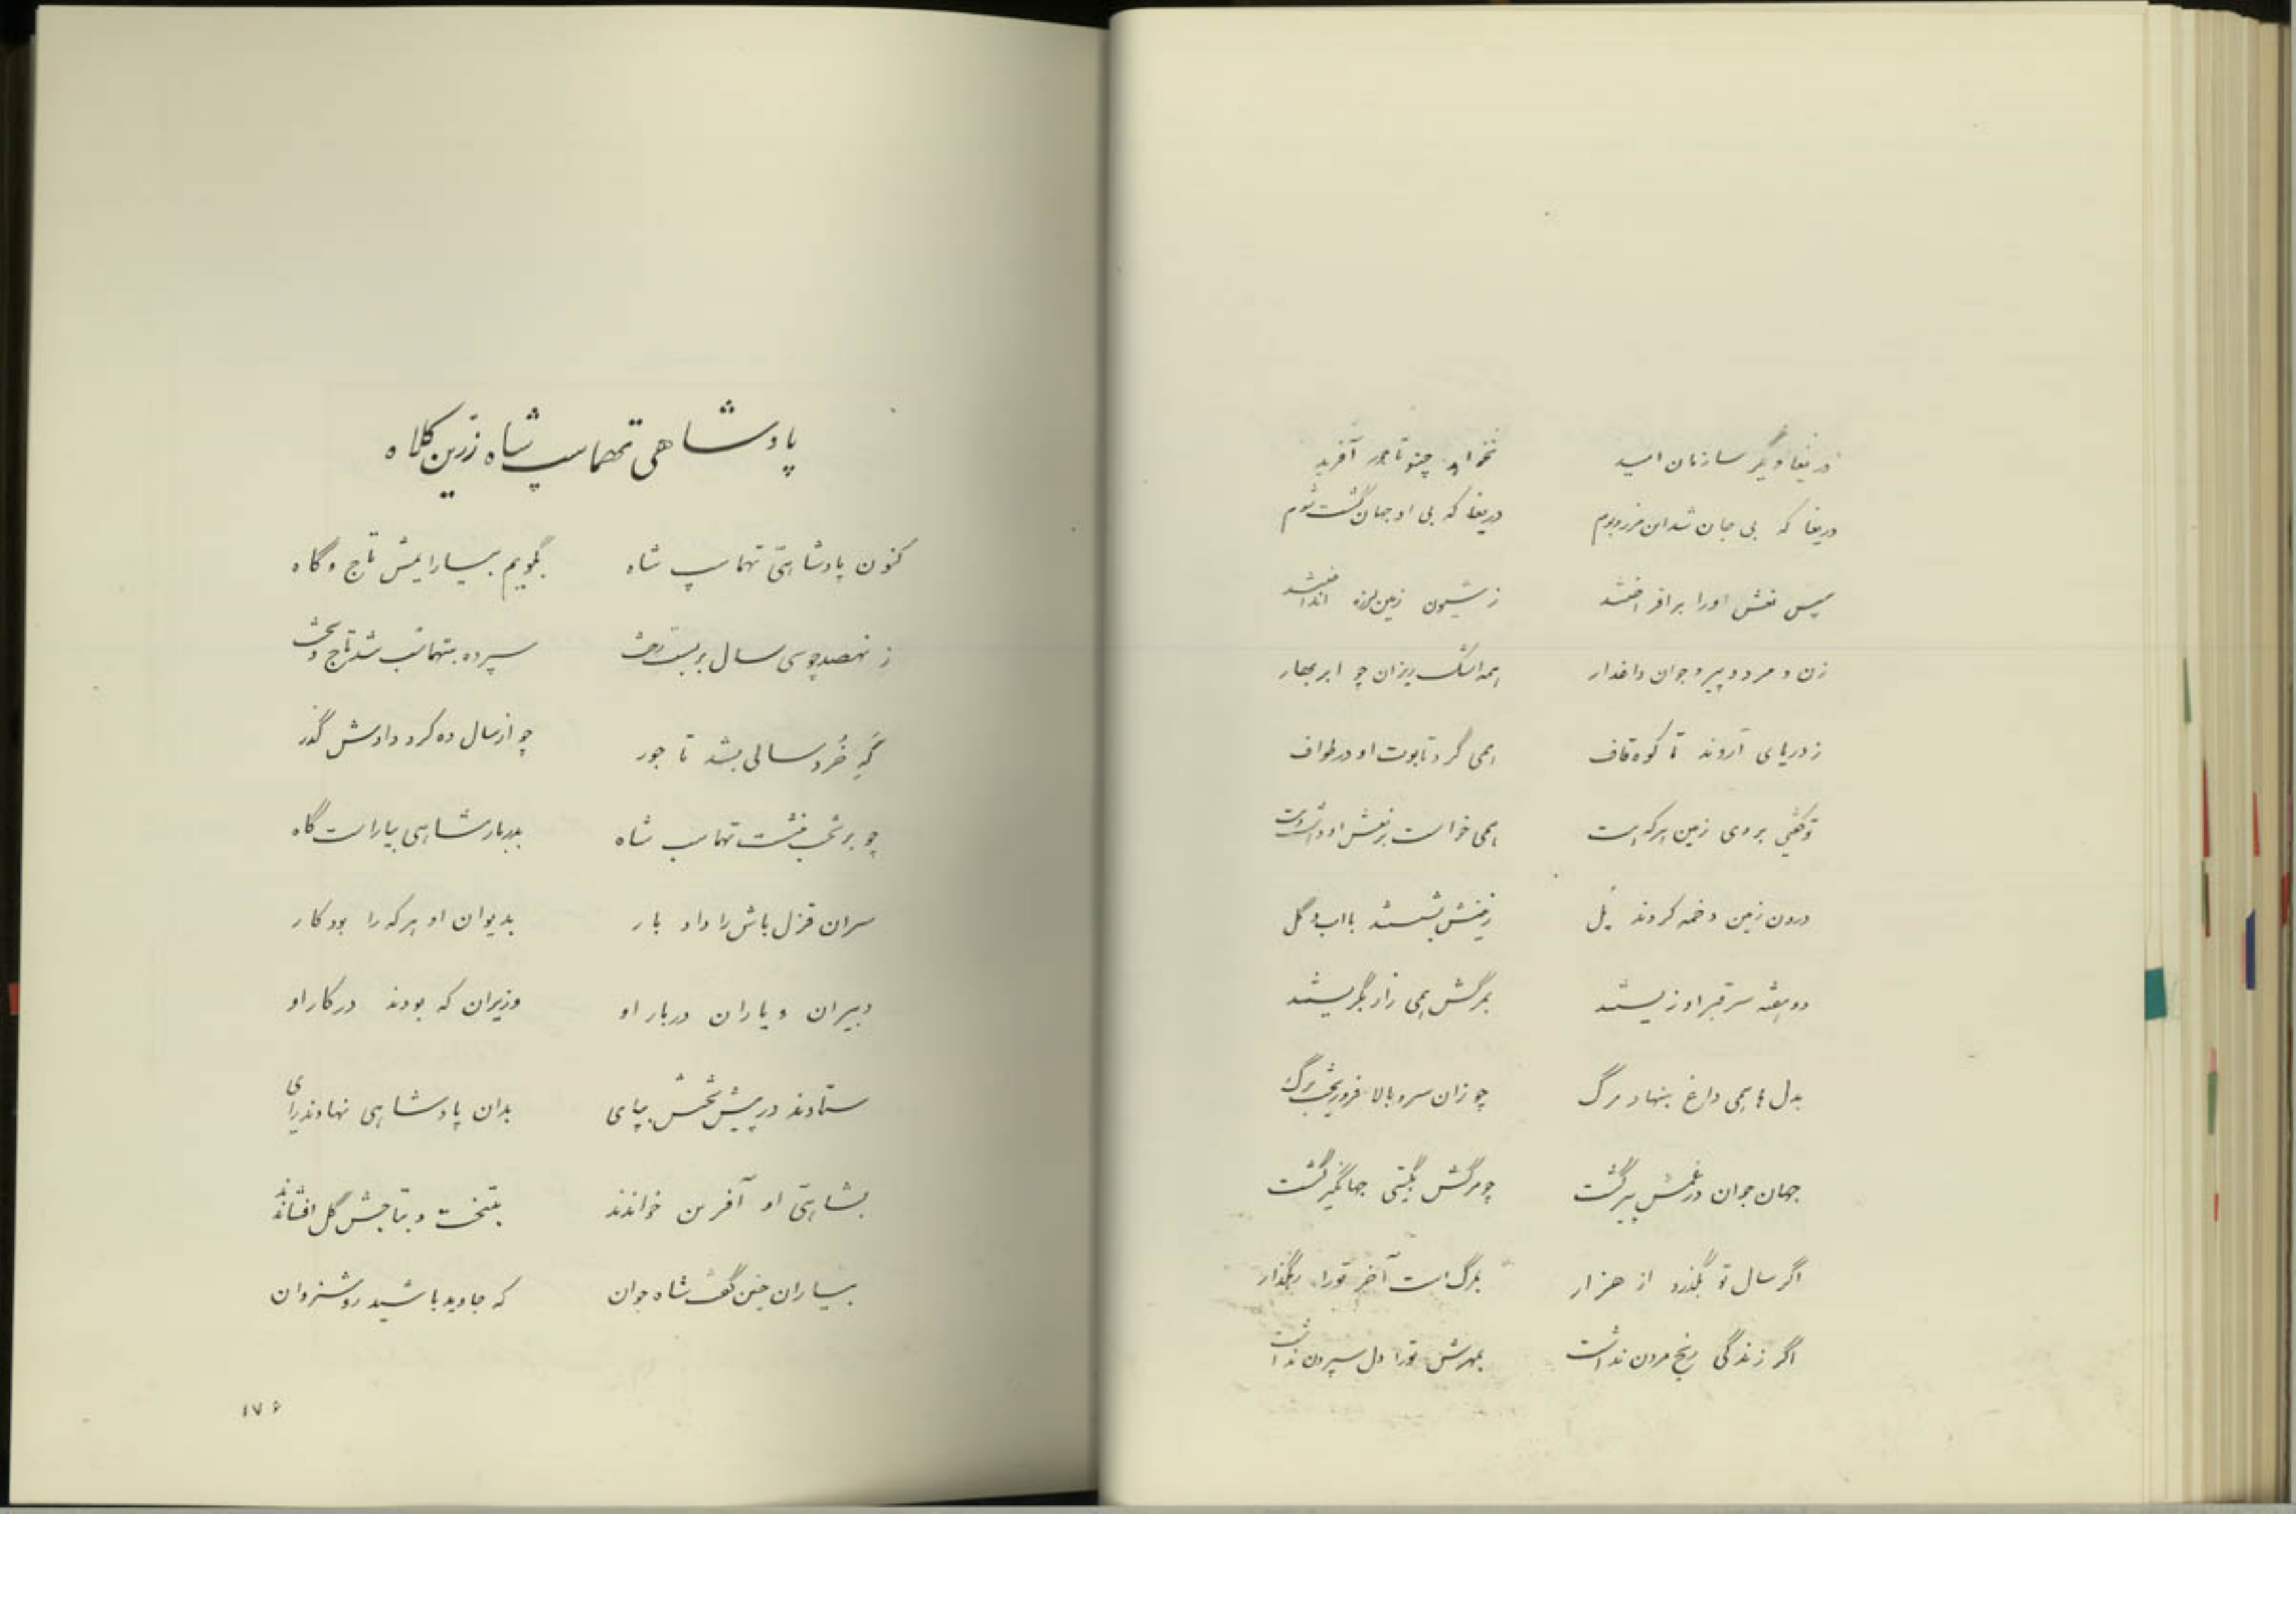 دریغا دگر سازمان امید نخواهد چنو تاجور آفرید
دریغا که بی جان شد این مرز و بوم دریغا که بی او جهان گشت شوم
سپس نعش او را برافراختند ز شیون زمین لرزه انداختند
زن و مرد و پیر و جوان داغدار همه اشک ریزان چو ابر بهار
ز دریای آروند تا کوه قاف همی گرد تابوت او در طواف
تو گفتی بروی زمین هر که هست همی خواست بر نعش او داشت دست
درون زمین دخمه کردند پل زمینش بشستند با آب و گل
دو هفته سر قبر او زیستند بمرگش همی زار بگریستند
بدل ها همی داغ بنهاد مرگ چو زان سرو بالا فرو ریخت برگ
جهان جوان در غمش پیر گشت چو مرگش بگیتی جهانگیر گشت
اگر سال تو بگذرد از هزار بمرگ است آخر تو را رهگذار
اگر زندگی رنج مردن نداشت بمهرش تو را دل سپردن نداشت
پادشاهی تهماسب شاه زرین کلاه
کنون پادشاهیّ تهماسپ شاه بگویم بیارایمش تاج و گاه
ز نهصد چو سی سال بربست رخت سپرده بتهماسب شد تاج و تخت
گَهِ خُردسالی بشد تاجور چو از سال ده کرد دادش گذر
چو بر تخت بنشست تهماسب شاه بدربار شاهی بیاراست گاه
سران قزل باش را داد بار بدیوان او هر که را بود کار
دبیران و یاران دربار او وزیران که بودند در کار او
ستادند در پیش تختش بپای بدان پادشاهی نهادند رای
بشاهیّ او آفرین خواندند بتخت و بتاجش گل افشاندند
بیاران چنین گفت شاه جوان که جاوید باشید روشنروان
۱۷۶